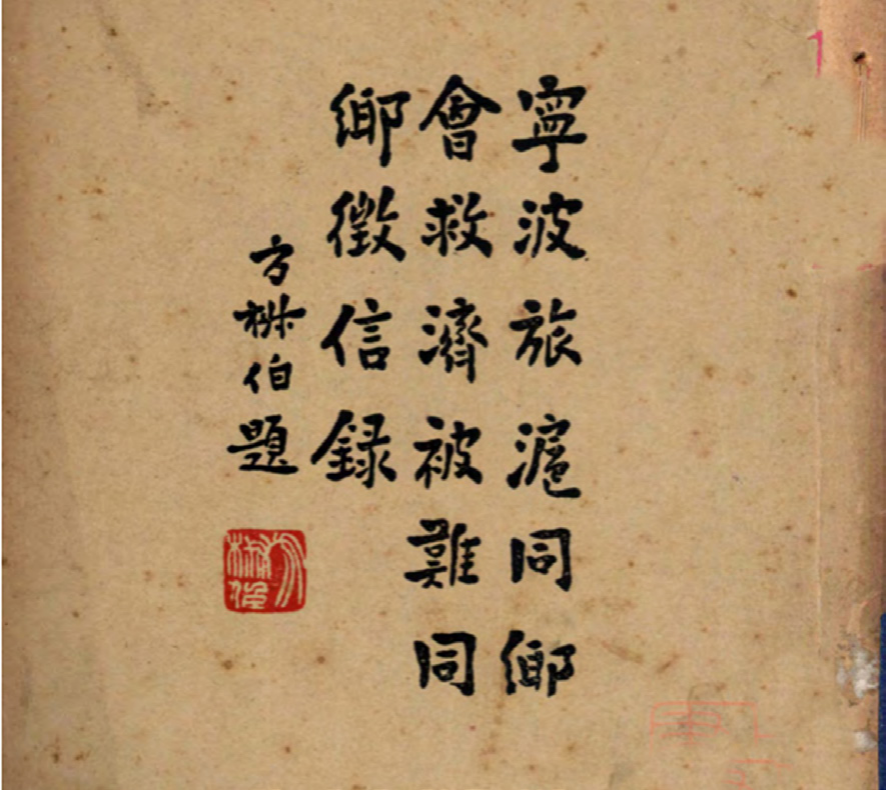 寧波旅滬同鄉
會救濟被難同
鄉徵信録
方椒伯題
1